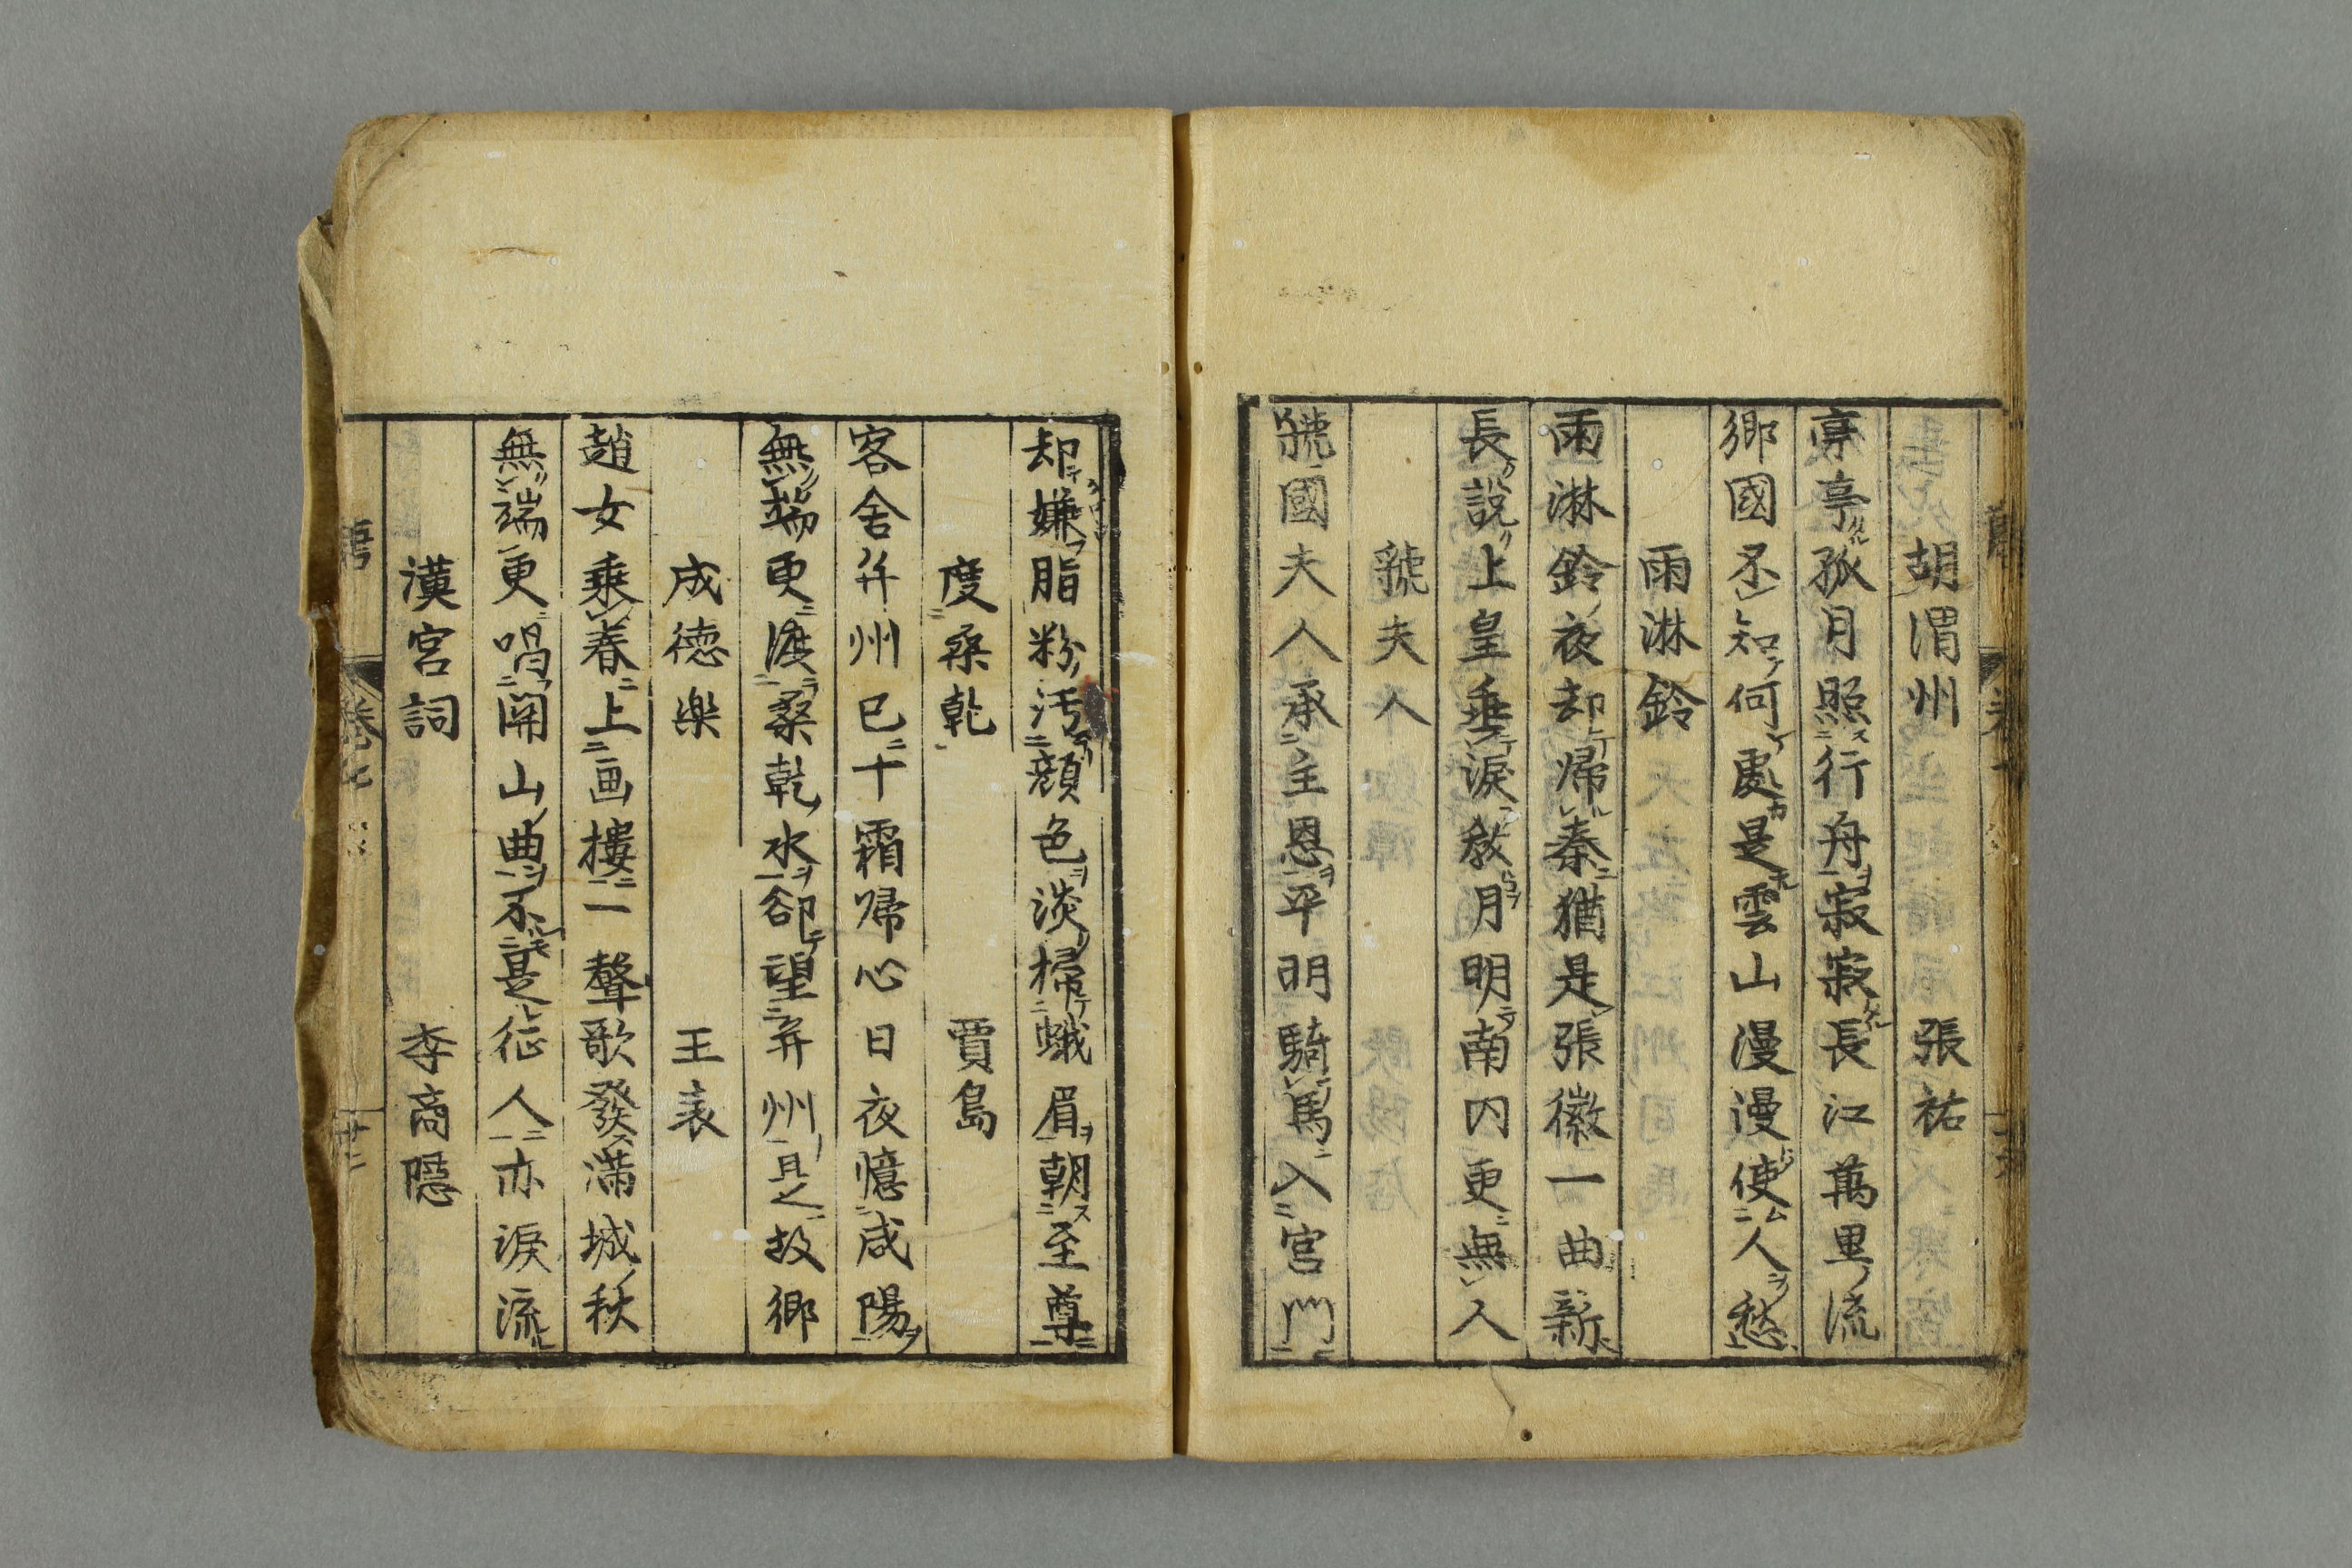 胡渭州　張祐
亭亭孤月照行舟寂寂長江萬里流
郷國不知何處是雲山漫漫使人愁
雨淋鈴
雨淋鈴夜却帰秦猶是張徽一曲新
長説上皇垂淚教月明南内更無人
虢夫人
虢國夫人承主恩平明騎馬入宮門
却嫌脂粉汚顔色淡掃蛾眉朝至尊
度桑乾　賈島
客舍并州已十霜帰心日夜憶咸陽
無端更渡桑乾水郤望并州是故郷
成徳樂　王表
趙女乘春上画樓一聲歌發滿城秋
無端更唱関山曲不是征人亦淚流
漢宮詞　李商隠